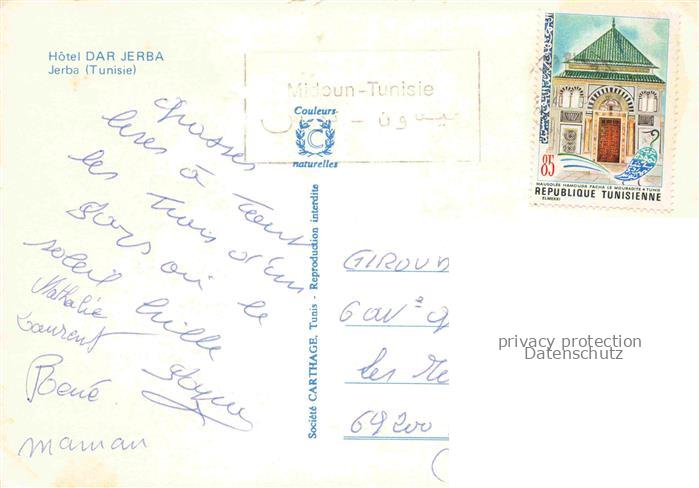 Hôtel DAR JERBA
Jerba (Tunisie)
Midoun-Tunisie
ميدون - تونس
Couleurs
C
naturelles
85
MAUSOLÉE HAMOUDA PACHA LE MOURADITE • TUNIS
REPUBLIQUE TUNISIENNE
ELMEKKI
Grosses
bises à tous
les trois d'un
pays où le
soleil brille
Nathalie
Laurent
René
maman
Société CARTHAGE, Tunis - Reproduction interdite
GIROUD
6 av
Les
69200
privacy protection
Datenschutz